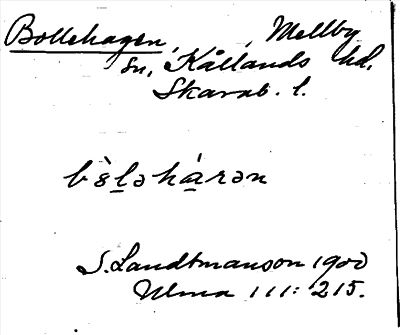 Bollehagen, Mellby
sn, Kållands hd.
Skarab. l.
bɛ̀l̠əhá̠rən
S. Landtmanson 1900
Ulma 111: 215.